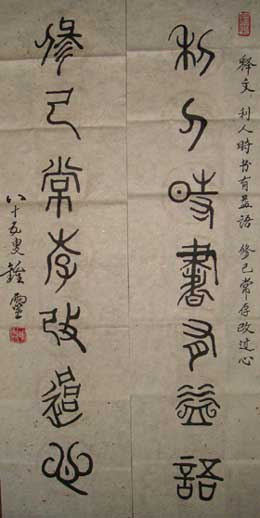 释文 利人時书有益语 修己常存改过心
利人時書有益語
修己常存改過心
八十五叟鐘靈